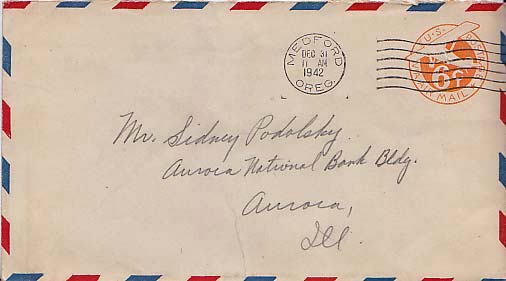 MEDFORD
DEC 31
11 AM
1942
OREG.
U.S. POSTAGE
6¢
AIR MAIL
Mr. Sidney Podolsky
Aurora National Bank Bldg.
Aurora,
Ill.